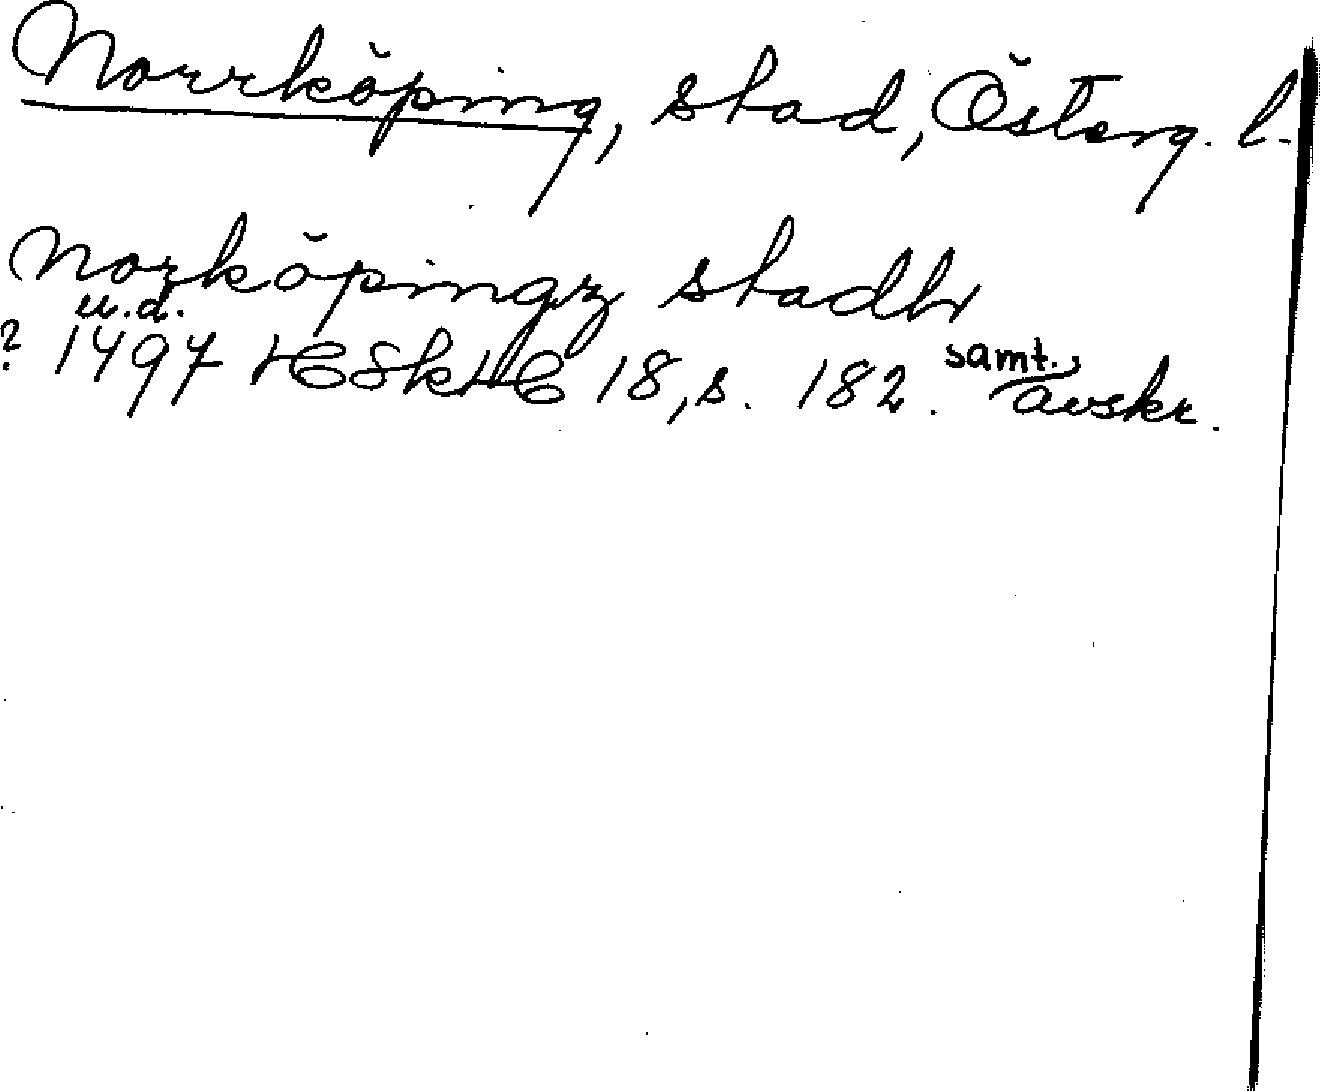 Norrköping, stad, Österg. l.
norköpingz stadh
u.d.
? 1497 HSkH 18, s. 182. samt. avskr.